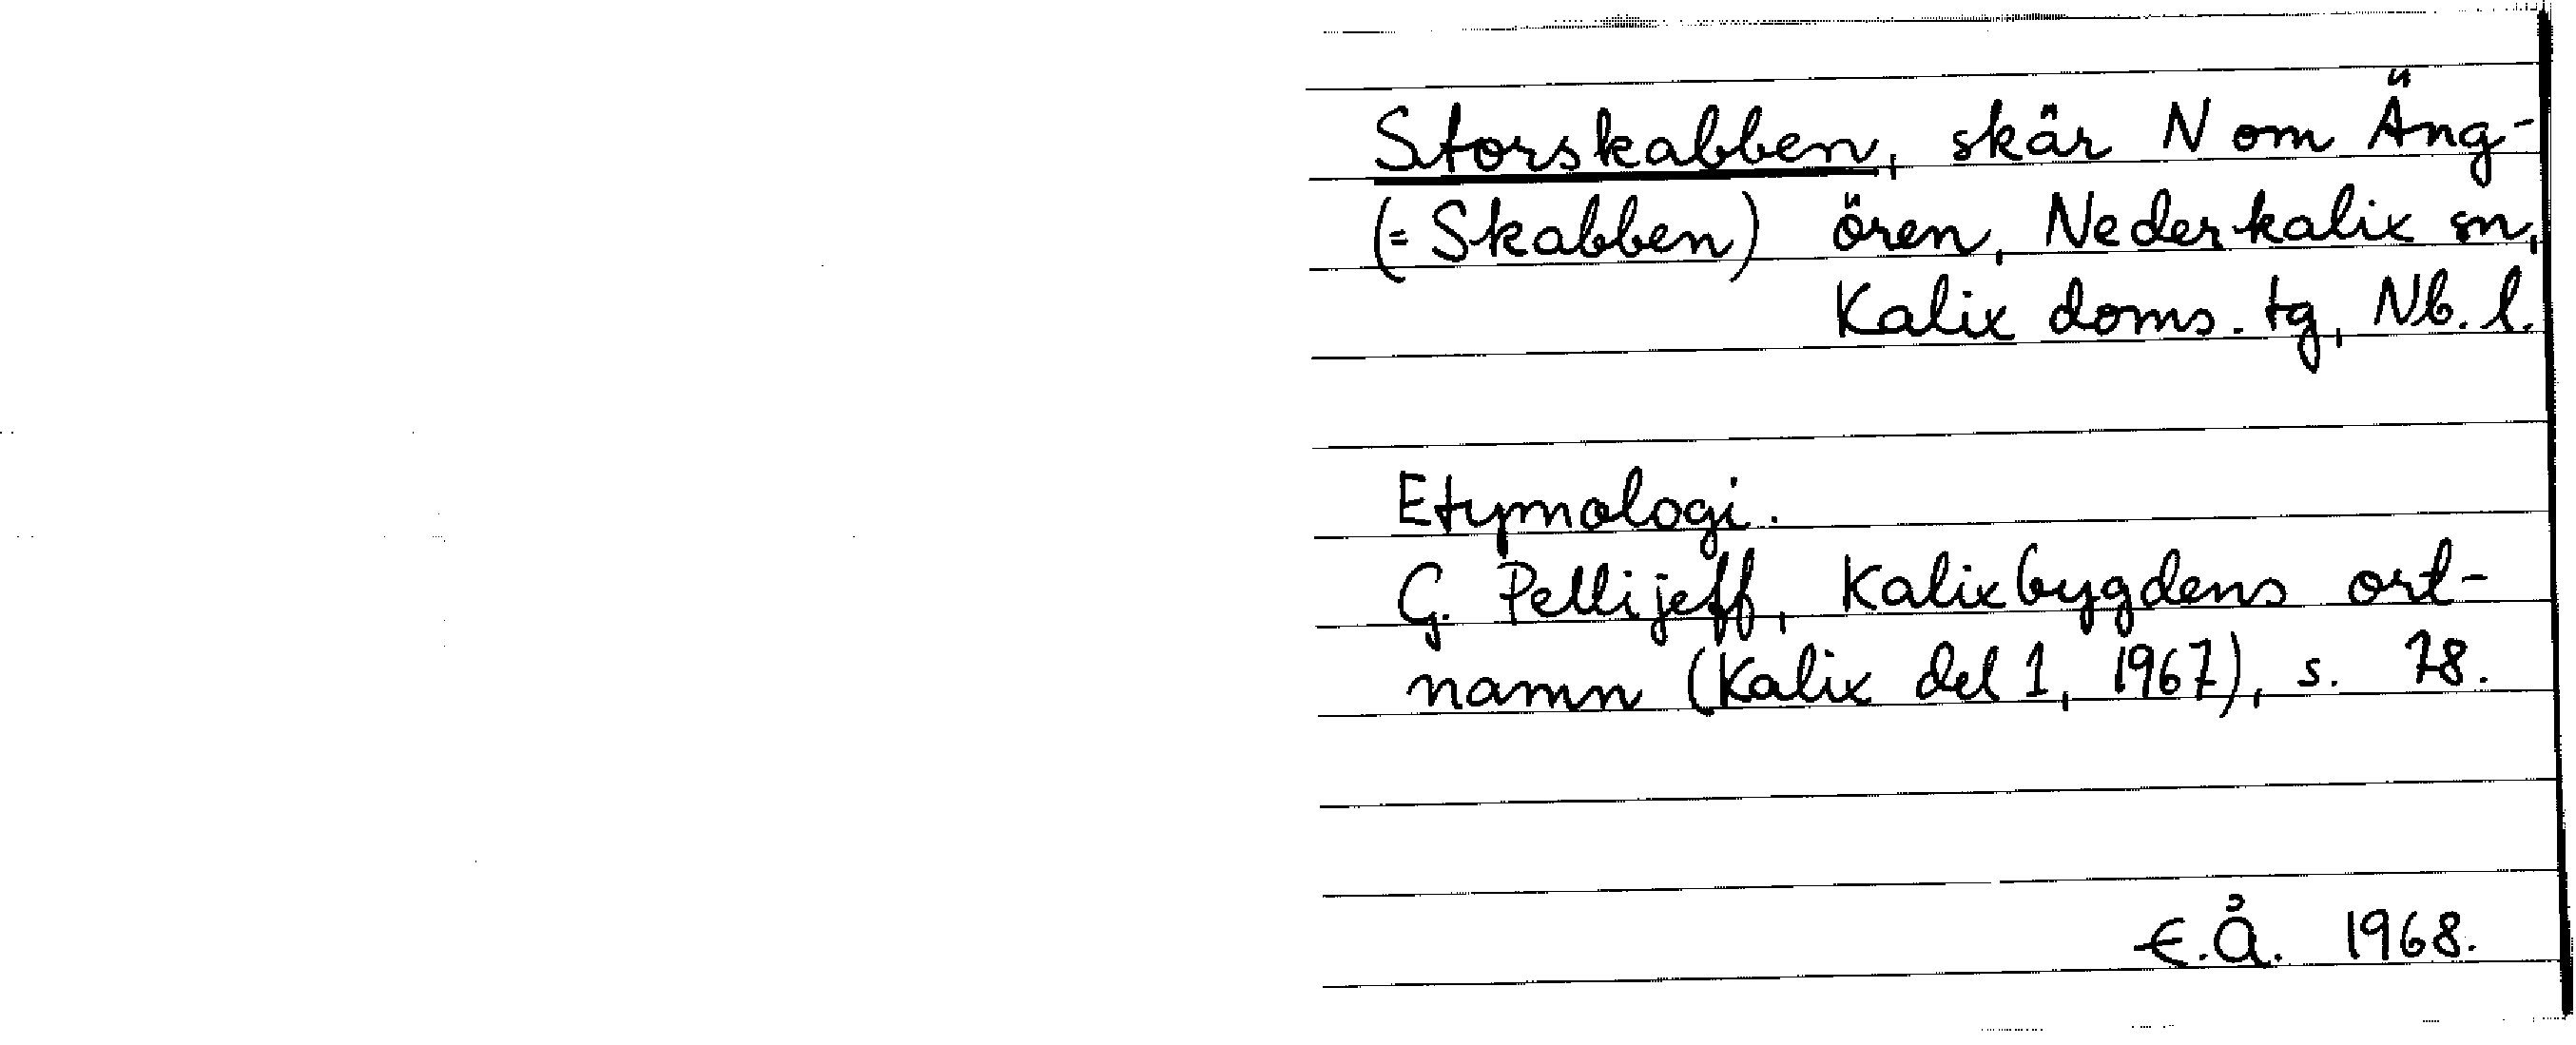 Storskabben, skär N om Äng-
(= Skabben) ören, Nederkalix sn,
Kalix doms. tg, Nb. l.
Etymologi.
G. Pellijeff, Kalixbygdens ort-
namn (Kalix del 1, 1967), s. 78.
E.Å. 1968.